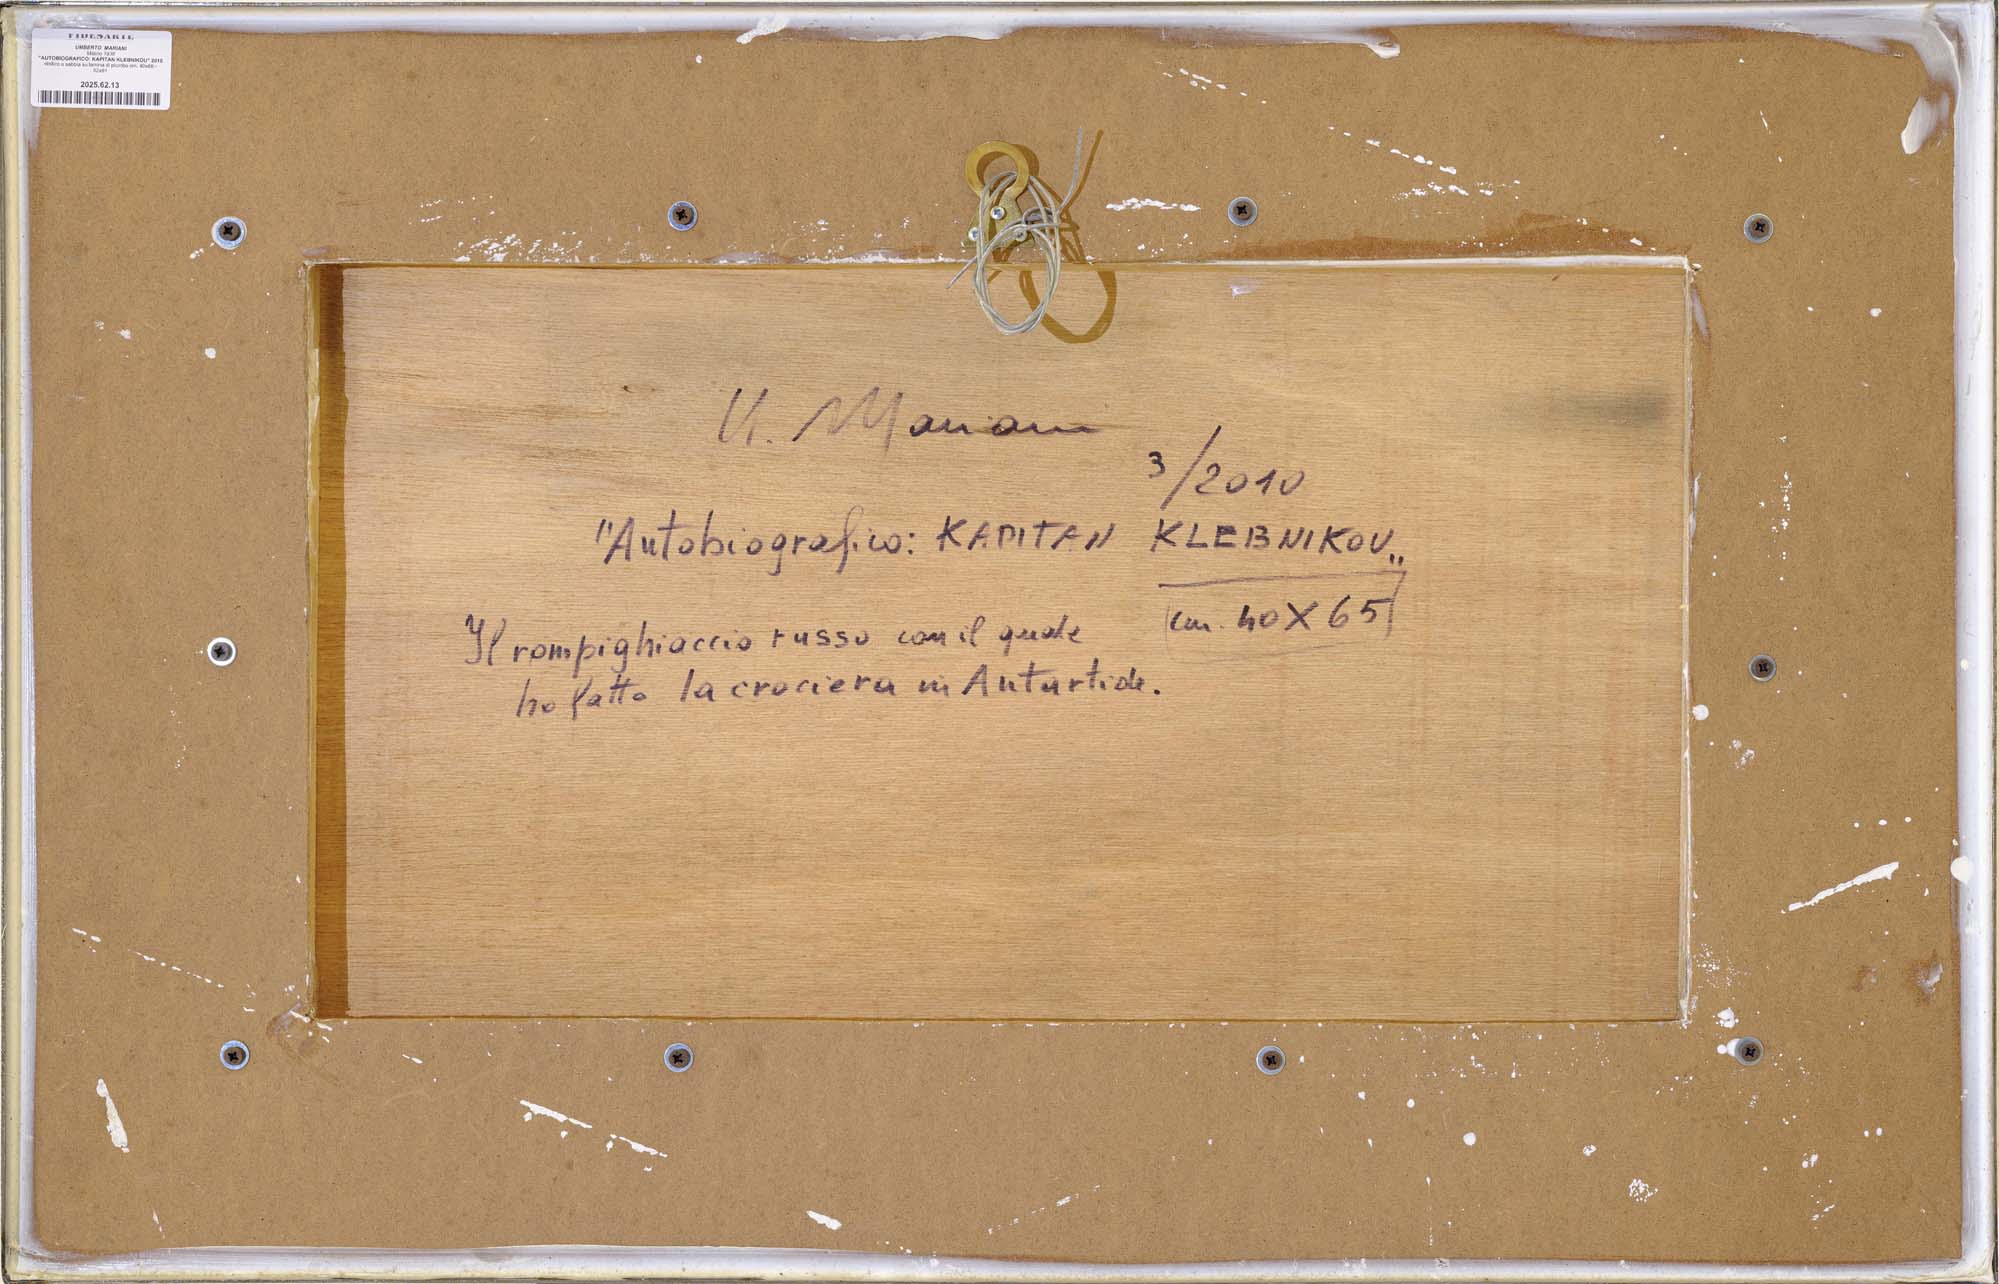 FIDESARTE
UMBERTO MARIANI
Milano 1936
"AUTOBIOGRAFICO: KAPITAN KLEBNIKOU" 2010
vinilico e sabbia su lamina di piombo cm. 40x65 -
62x81
2025.62.13
U. Mariani
3/2010
"Autobiografico: KAPITAN KLEBNIKOV"
(cm. 40X65)
Il rompighiaccio russo con il quale
ho fatto la crociera in Antartide.